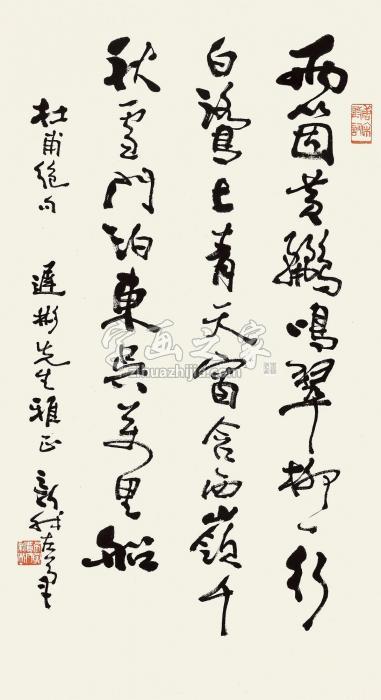 两箇黄鸝鳴翠柳一行
白鷺上青天窗含西嶺千
秋雪門泊東吴萬里船
杜甫絶句 遲彬先生雅正 新我左筆
字画之家
zihuazhijia.com